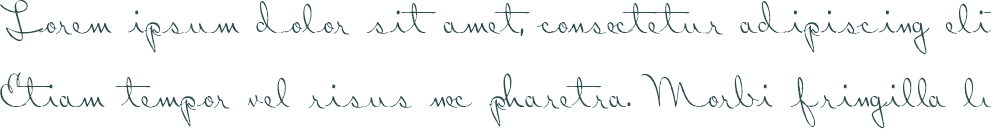 Lorem ipsum dolor sit amet, consectetur adipiscing eli
Etiam tempor vel risus nec pharetra. Morbi fringilla li